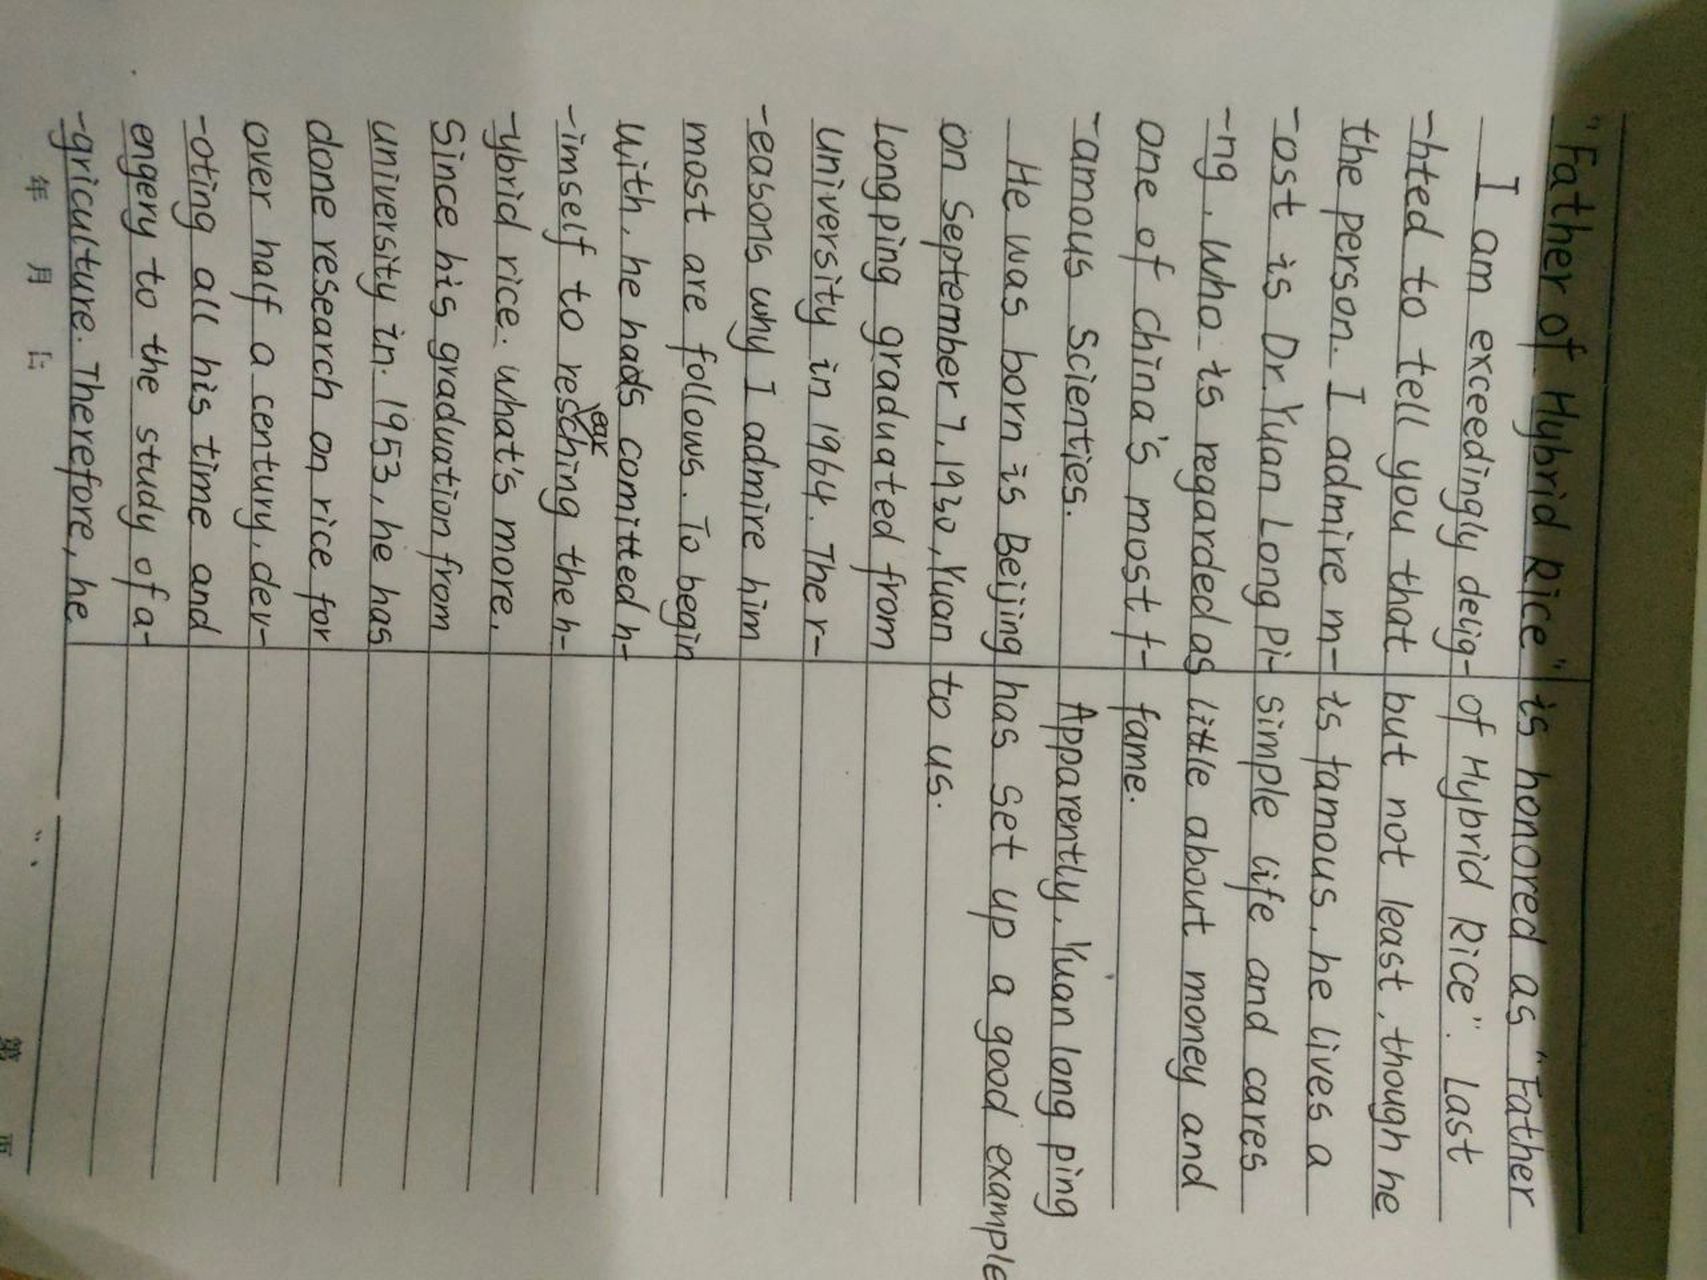 "Father of Hybrid Rice"
I am exceedingly delig-
-hted to tell you that
the person. I admire m-
-ost is Dr. Yuan Long Pi-
-ng, who is regarded as
one of china's most f-
-amous Scienties.
He was born is Beijing
on September 7, 1930, Yuan
Longping graduated from
University in 1964. The r-
-easons why I admire him
most are follows. To begin
with, he hads comitted h-
-imself to researching the h-
-ybrid rice. what's more,
Since his graduation from
university in 1953, he has
done research on rice for
over half a century, dev-
-oting all his time and
engery to the study of a-
-griculture. Therefore, he
is honored as "Father
of Hybrid Rice". Last
but not least, though he
is famous, he lives a
simple life and cares
little about money and
fame.
Apparently, Yuan long ping
has set up a good example
to us.
年 月 日
第 页